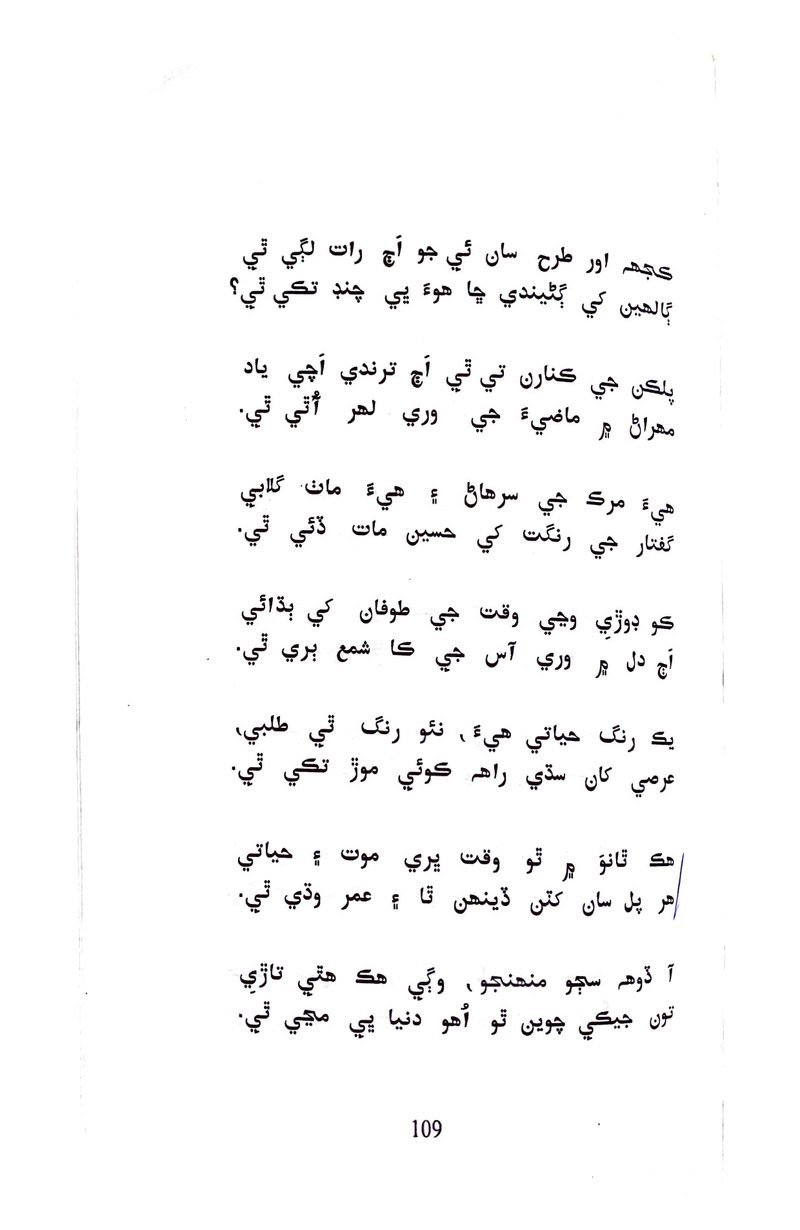 ڪجهہ اور طرح سان ئي جو اَڄ رات لڳي ٿي
ڳالهين کي ڳڻيندي ڇا هوءَ ڀي چنڊ تڪي ٿي؟
پلڪن جي ڪنارن تي ٿي اَڄ ترندي اَچي ياد
مهراڻ ۾ ماضيءَ جي وري لهر اُٿي ٿي.
هيءَ مرڪ جي سرهاڻ ۽ هيءَ ماٺ گلابي
گفتار جي رنگت کي حسين مات ڏئي ٿي.
ڪو ڊوڙي وڃي وقت جي طوفان کي ٻڌائي
اَڄ دل ۾ وري آس جي ڪا شمع ٻري ٿي.
يڪ رنگ حياتي هيءَ، نئو رنگ ٿي طلبي،
عرصي کان سڌي راهہ ڪوئي موڙ تڪي ٿي.
هڪ ٿانوَ ۾ ٿو وقت ڀري موت ۽ حياتي
هر پل سان کٽن ڏينهن ٿا ۽ عمر وڌي ٿي.
آ ڏوهہ سڄو منهنجو، وڳي هڪ هٿي تاڙي
تون جيڪي چوين ٿو اُهو دنيا ڀي مڃي ٿي.
109